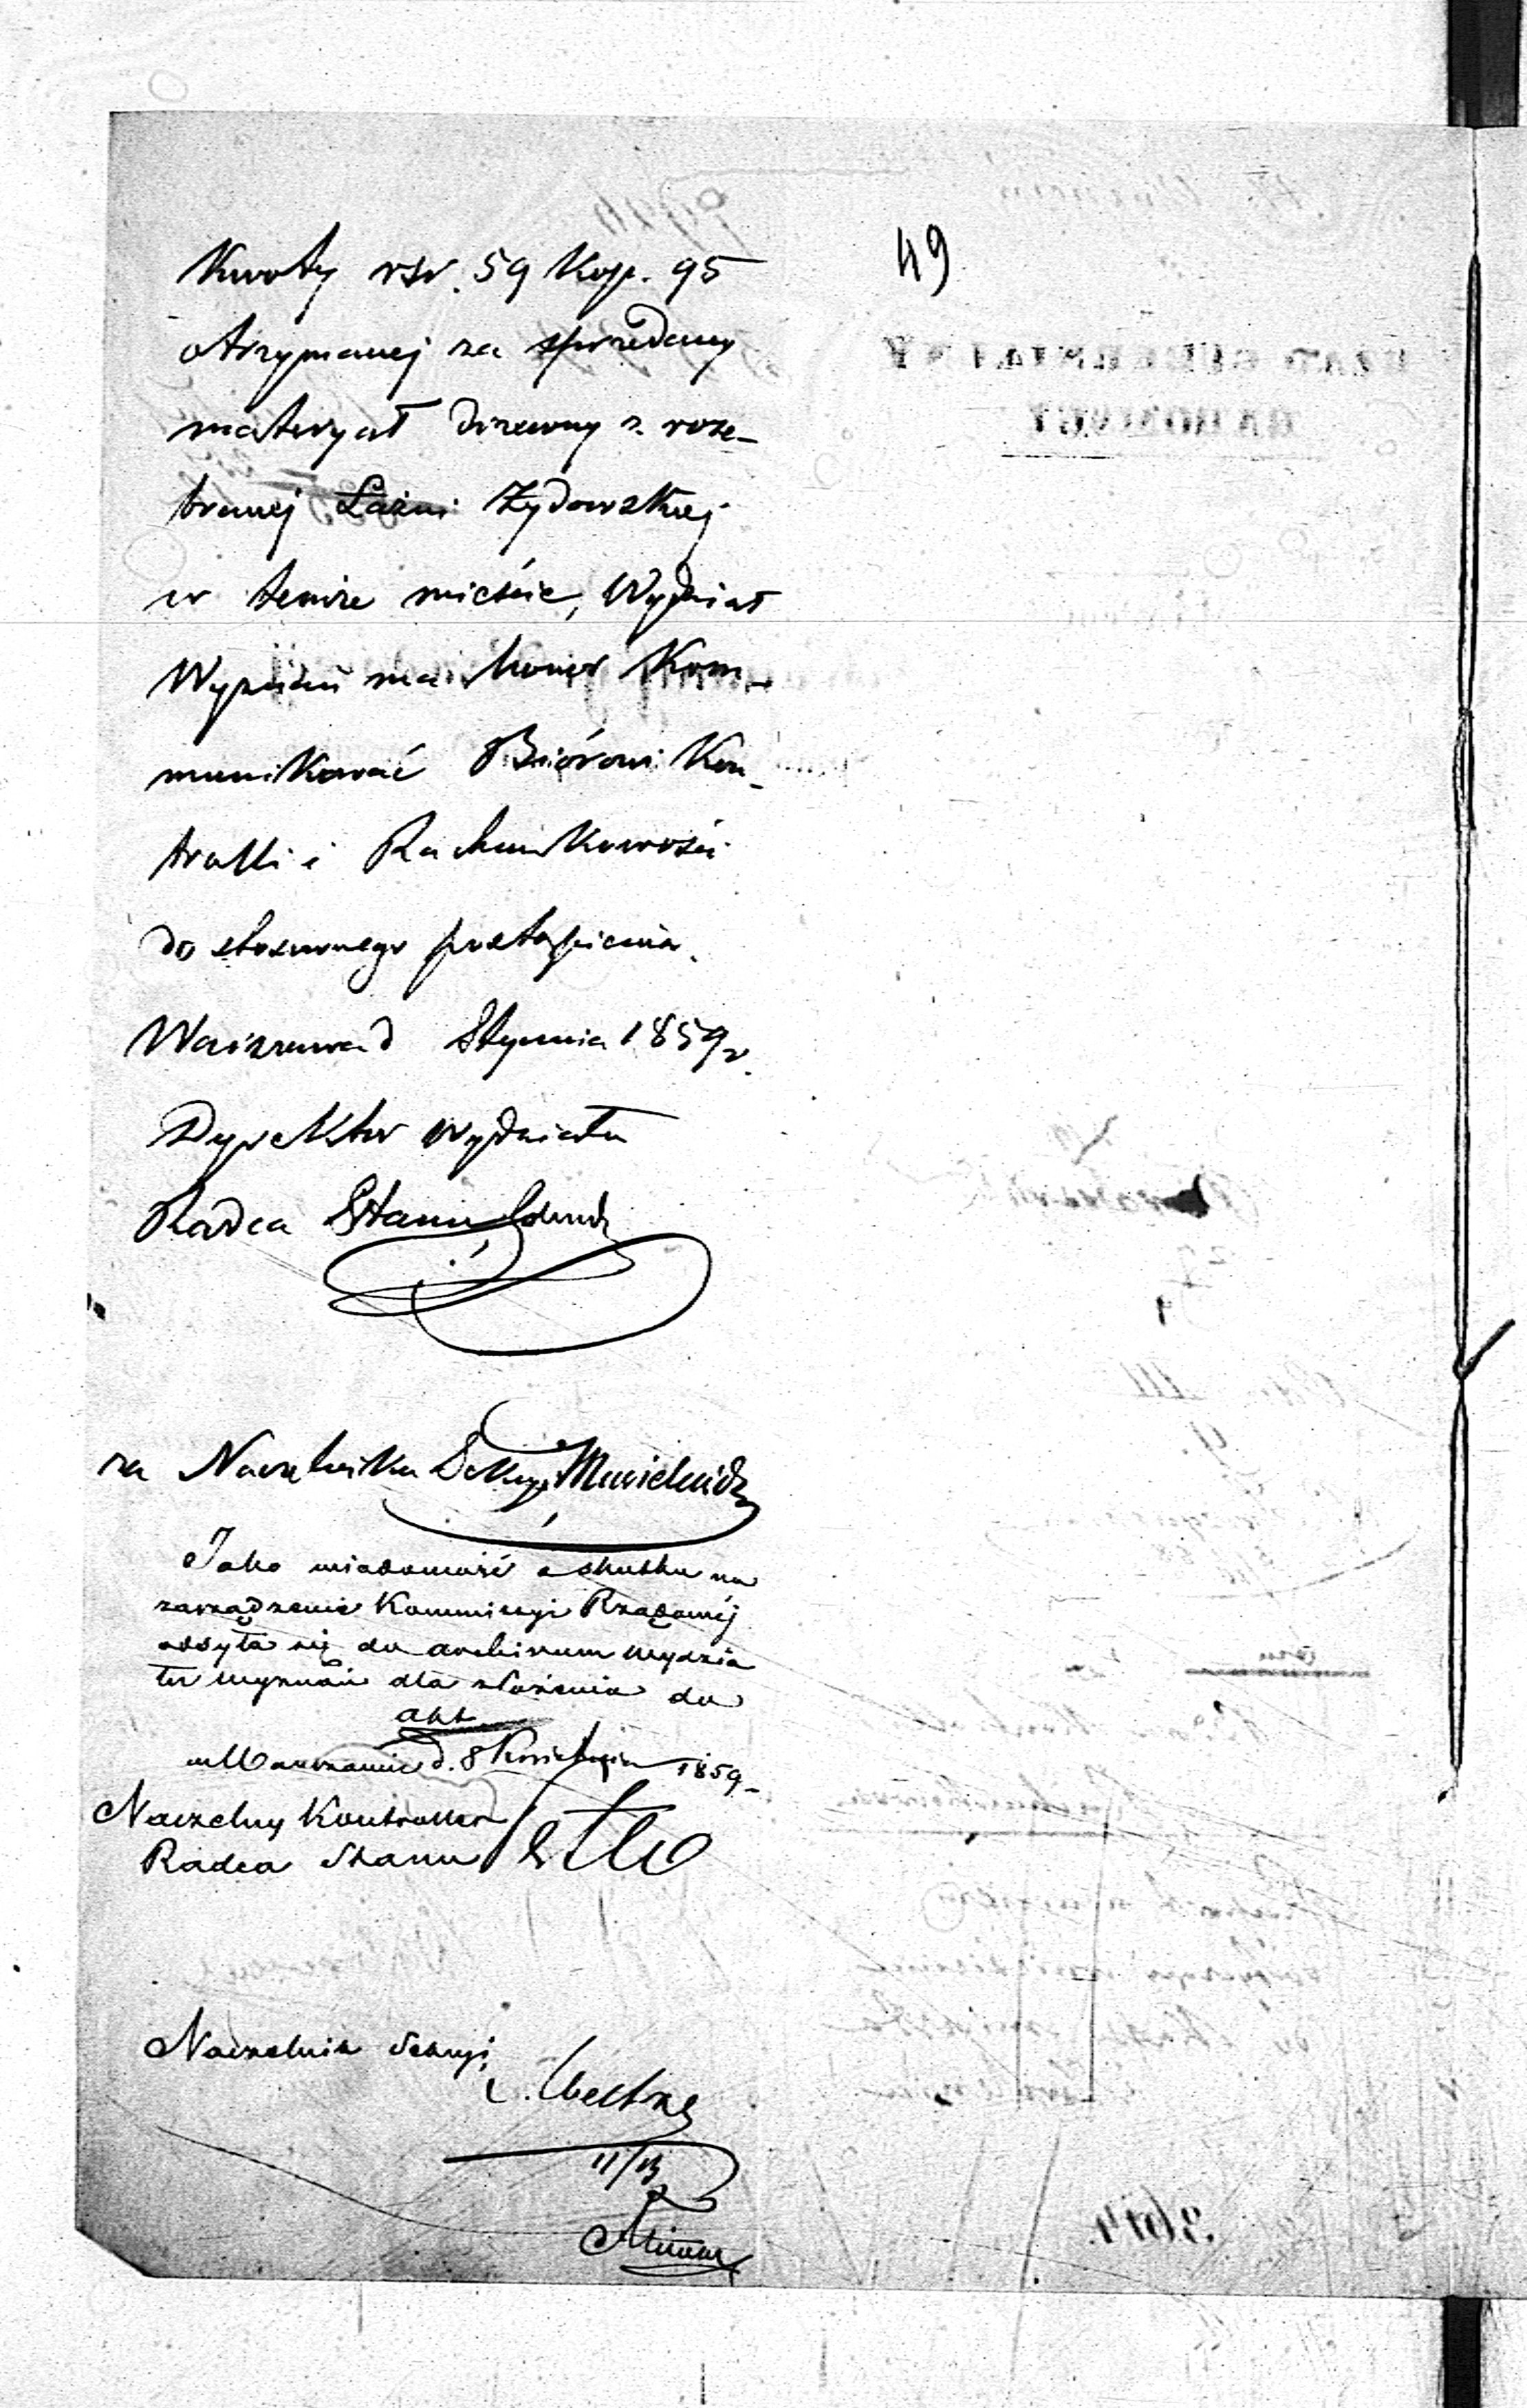 49
Kwoty rsr. 59 Kop. 95
otrzymanej za sprzedany
materyał drzewny z roze-
branej Łaźni Żydowskiej
w temże mieście, Wydział
Wyznań ma honor Kom-
munikować Biórowi Kon-
trolli i Rachunkowości
do stosownego postąpienia.
Warszawa d Stycznia 1859 r.
Dyrektor Wydziału
Radca Stanu
za Naczelnika Sekcyi
Jako wiadomość o skutku na
zarządzenie Kommissyi Rządowéj
odsyła się do archivum wydzia
łu wyznań dla złożenia do
akt
w Warszawie d. 8 Kwietnia 1859
Naczelny Kontroller
Radca Stanu
Naczelnik Sekcyi